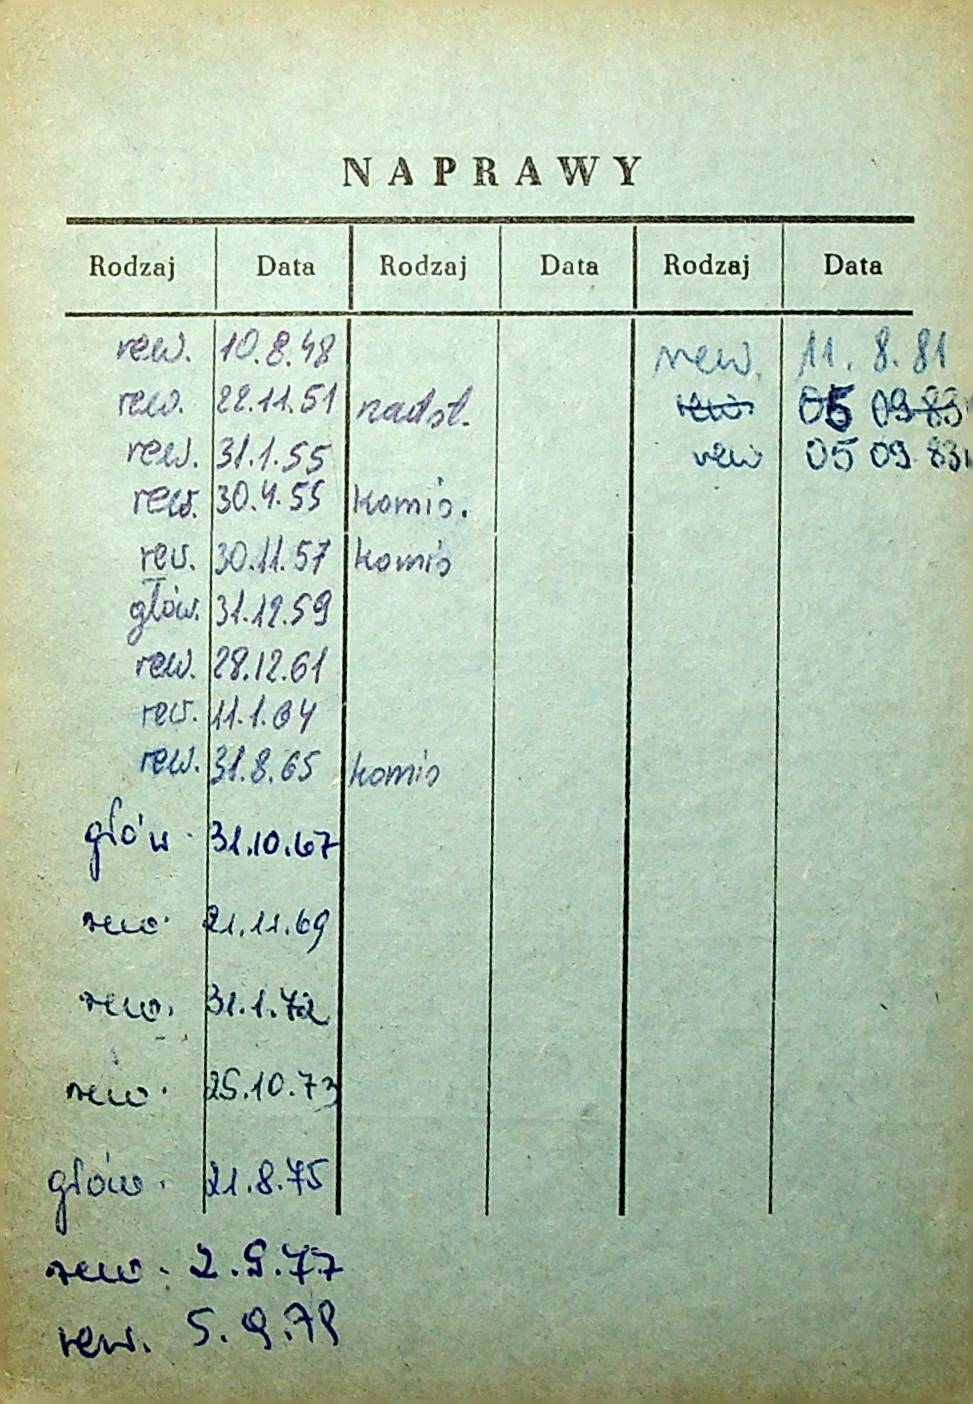 NAPRAWY
Rodzaj Data Rodzaj Data Rodzaj Data
rew. 10.8.48 rew. 11. 8. 81
rew. 22.11.51 nadst. rew. 05 09 83
rew. 31.1.55 rew 05 09 83
rew. 30.4.55 komis.
rew. 30.11.57 komis
głów. 31.12.59
rew. 28.12.61
rew. 11.1.64
rew. 31.8.65 komis
głów. 31.10.67
rew. 21.11.69
rew. 31.1.72
rew. 25.10.73
głów. 21.8.75
rew. 2.9.77
rew. 5.9.79